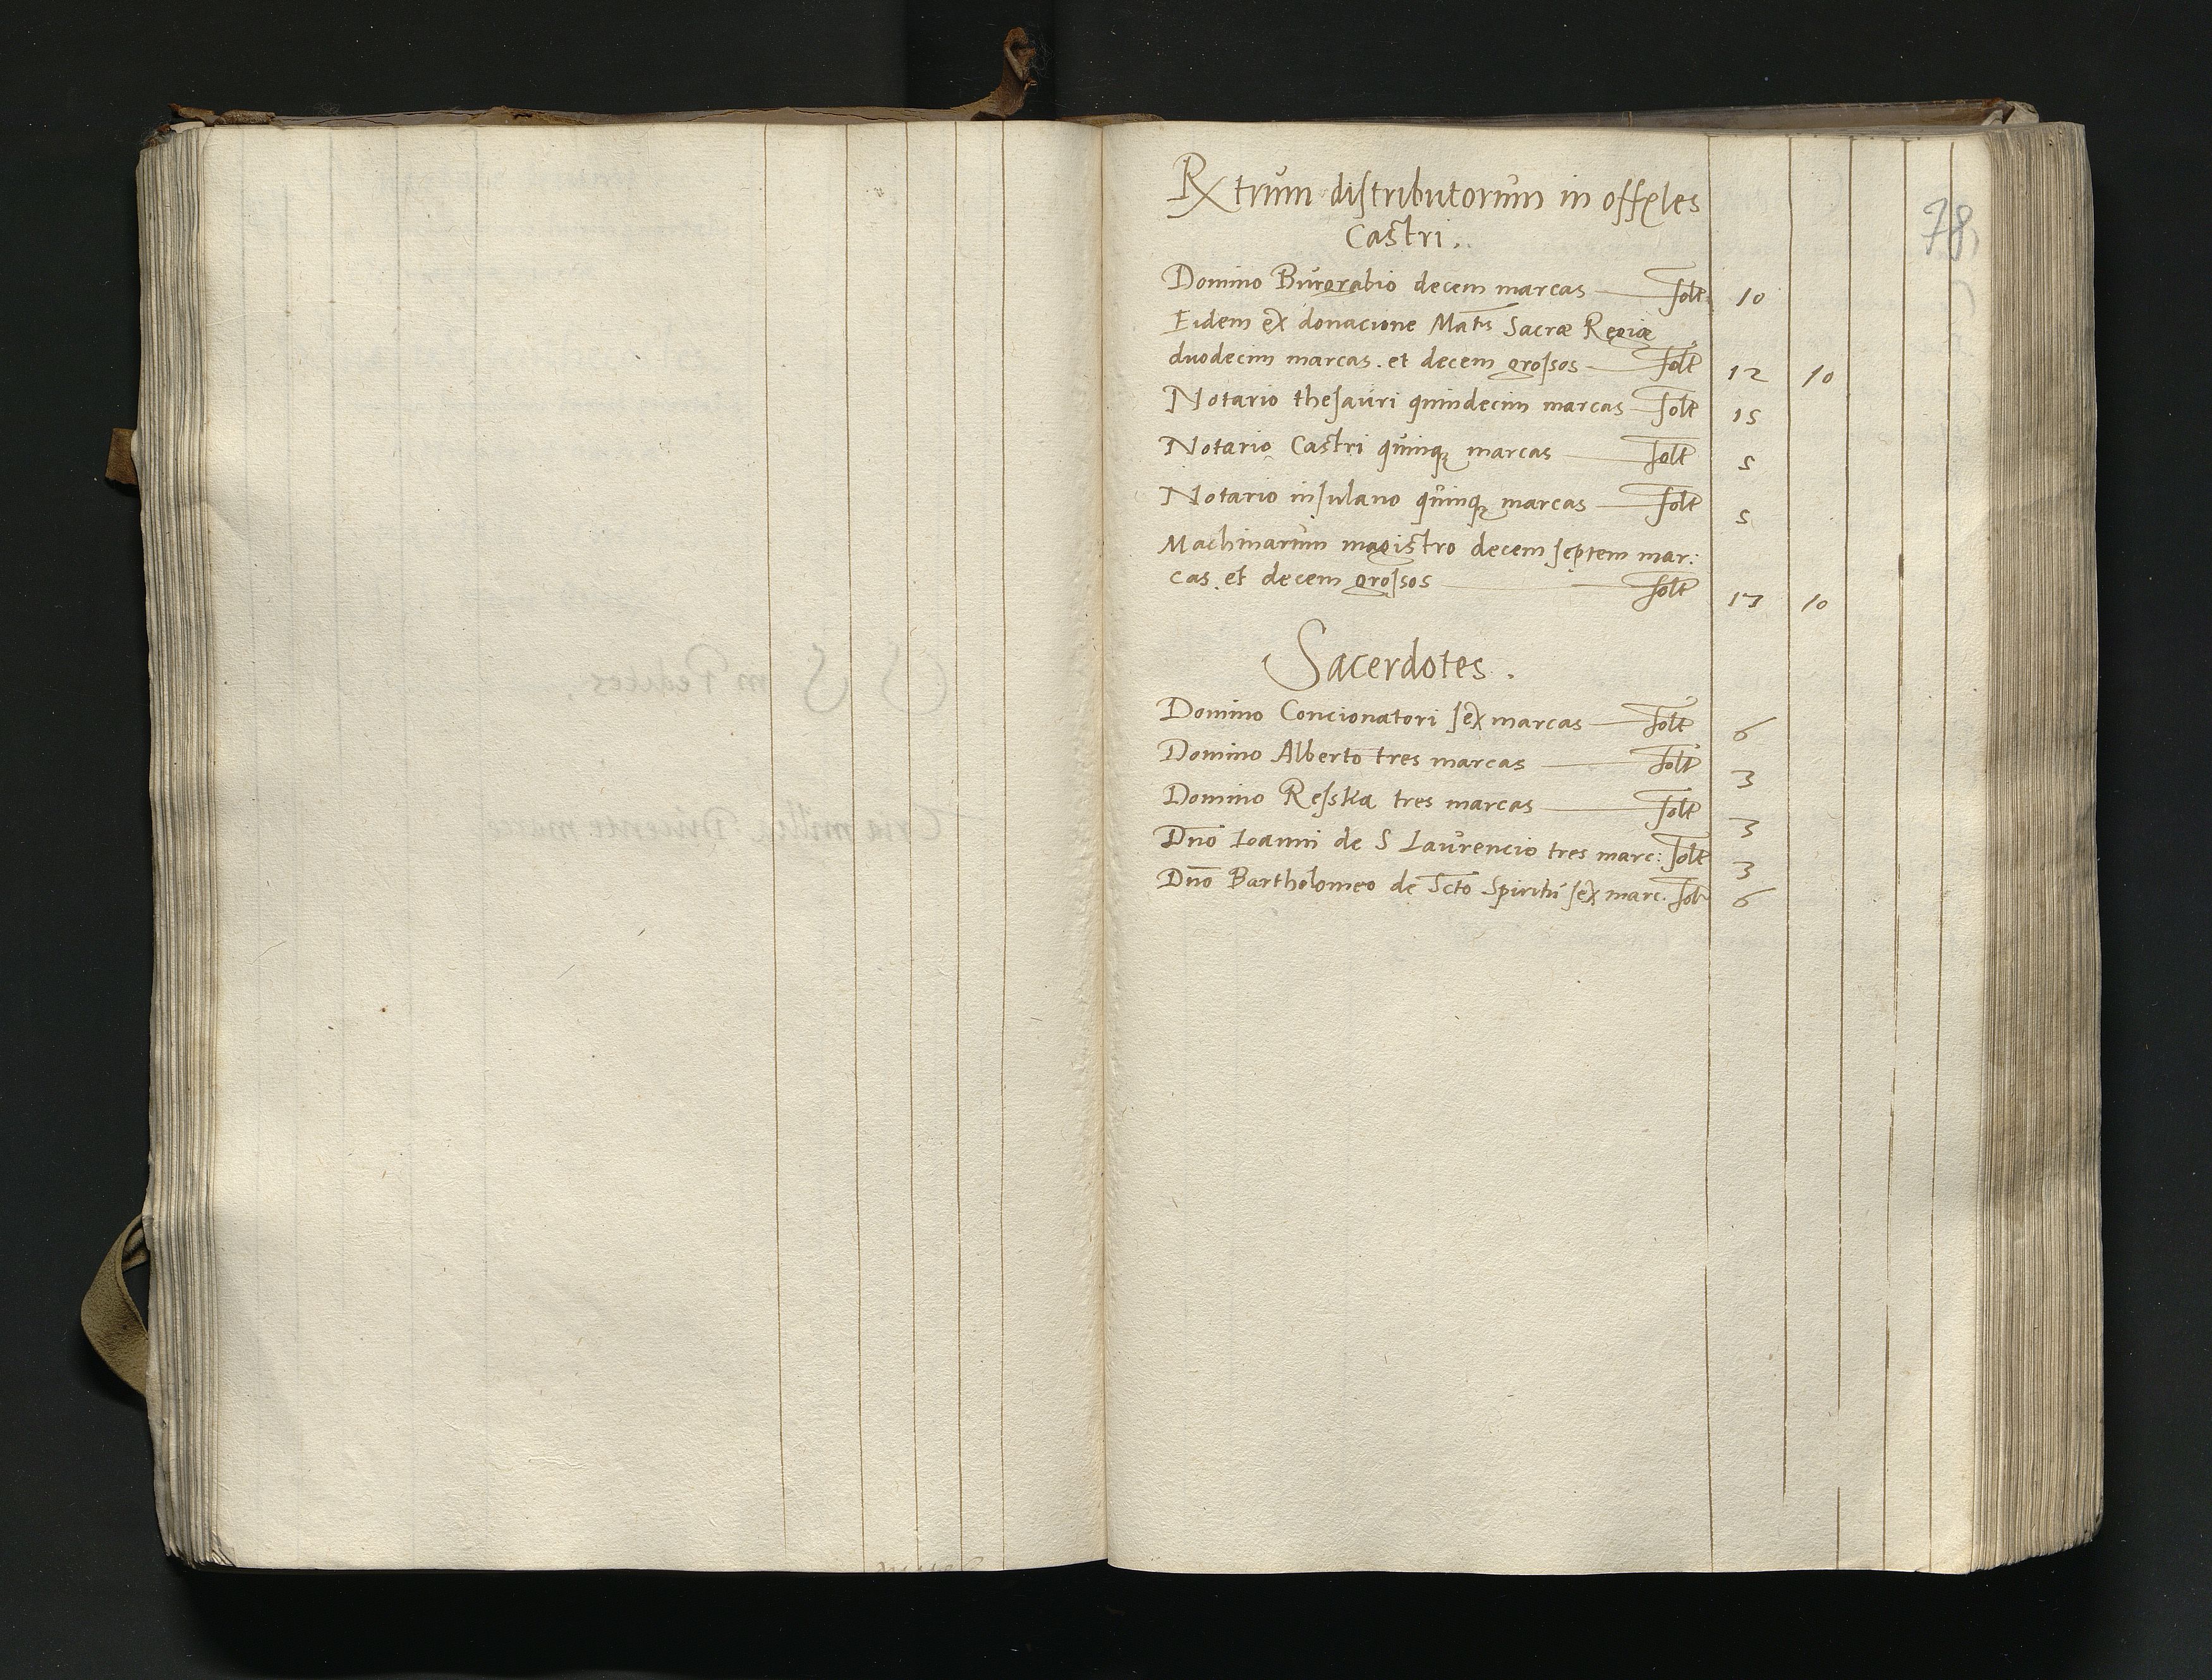 78
Rxtrum distributorum in offles
Castri.
Domino Burgrabio decem marcas solt 10
Eidem ex donacione Matis Sacræ Regiæ
duodecim marcas. et decem grossos solt 12 10
Notario thesauri quindecim marcas solt 15
Notario Castri quinq marcas solt 5
Notario insulano quinq marcas solt 5
Machinarum magistro decem septem mar:
cas. et decem grossos solt 17 10
Sacerdotes.
Domino Concionatori sex marcas solt 6
Domino Alberto tres marcas solt 3
Domino Resska tres marcas solt 3
Dno Ioanni de S Laurencio tres marc: solt 3
Dno Bartholomeo de Scto Spiritu sex marc. solt 6